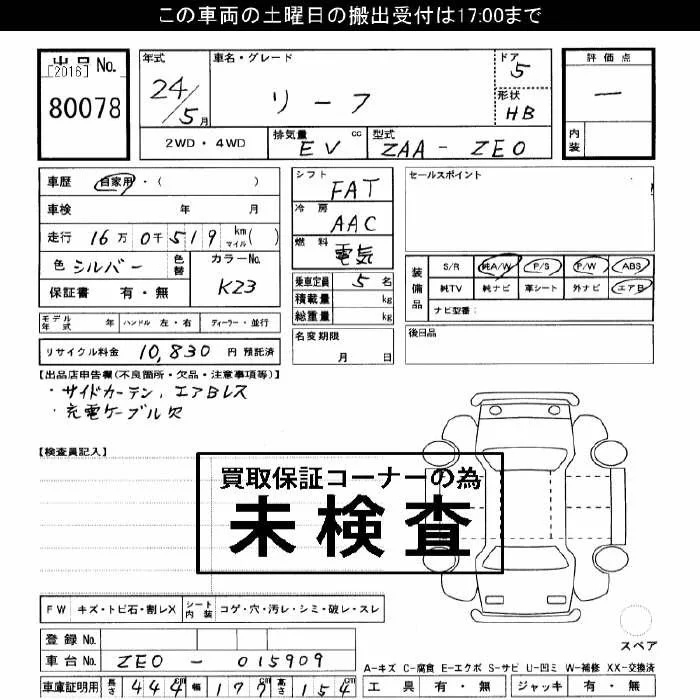 この車両の土曜日の搬出受付は17:00まで
出品 No. [2016] 80078
年式 24/5月
車名・グレード リーフ
ドア 5
形状 HB
評価点 ー
内装
2WD・4WD
排気量 cc EV
型式 ZAA-ZE0
車歴 自家用・( )
車検 年 月
走行 16万0千519 km マイル( )
色 シルバー 色替
カラーNo. K23
保証書 有・無
シフト FAT
冷房 AAC
燃料 電気
乗車定員 5名
積載量 kg
総重量 kg
セールスポイント
装備品 S/R 純A/W P/S P/W ABS
純TV 純ナビ 革シート 外ナビ エアB
ナビ型番:
モデル年式 年 ハンドル 左・右 ディーラー・並行
名変期限 月 日
後日品
リサイクル料金 10,830 円 預託済
【出品店申告欄(不良箇所・欠品・注意事項等)】
・サイドカーテン、エアBレス
・充電ケーブル欠
【検査員記入】
買取保証コーナーの為
未検査
FW キズ・トビ石・割レX シート内装 コゲ・穴・汚レ・シミ・破レ・スレ
登録No.
車台No. ZE0-015909
スペア
A-キズ C-腐食 E-エクボ S-サビ U-凹ミ W-補修 XX-交換済
車庫証明用 長さ 444cm 幅 177cm 高さ 154cm
工具 有・無 ジャッキ 有・無